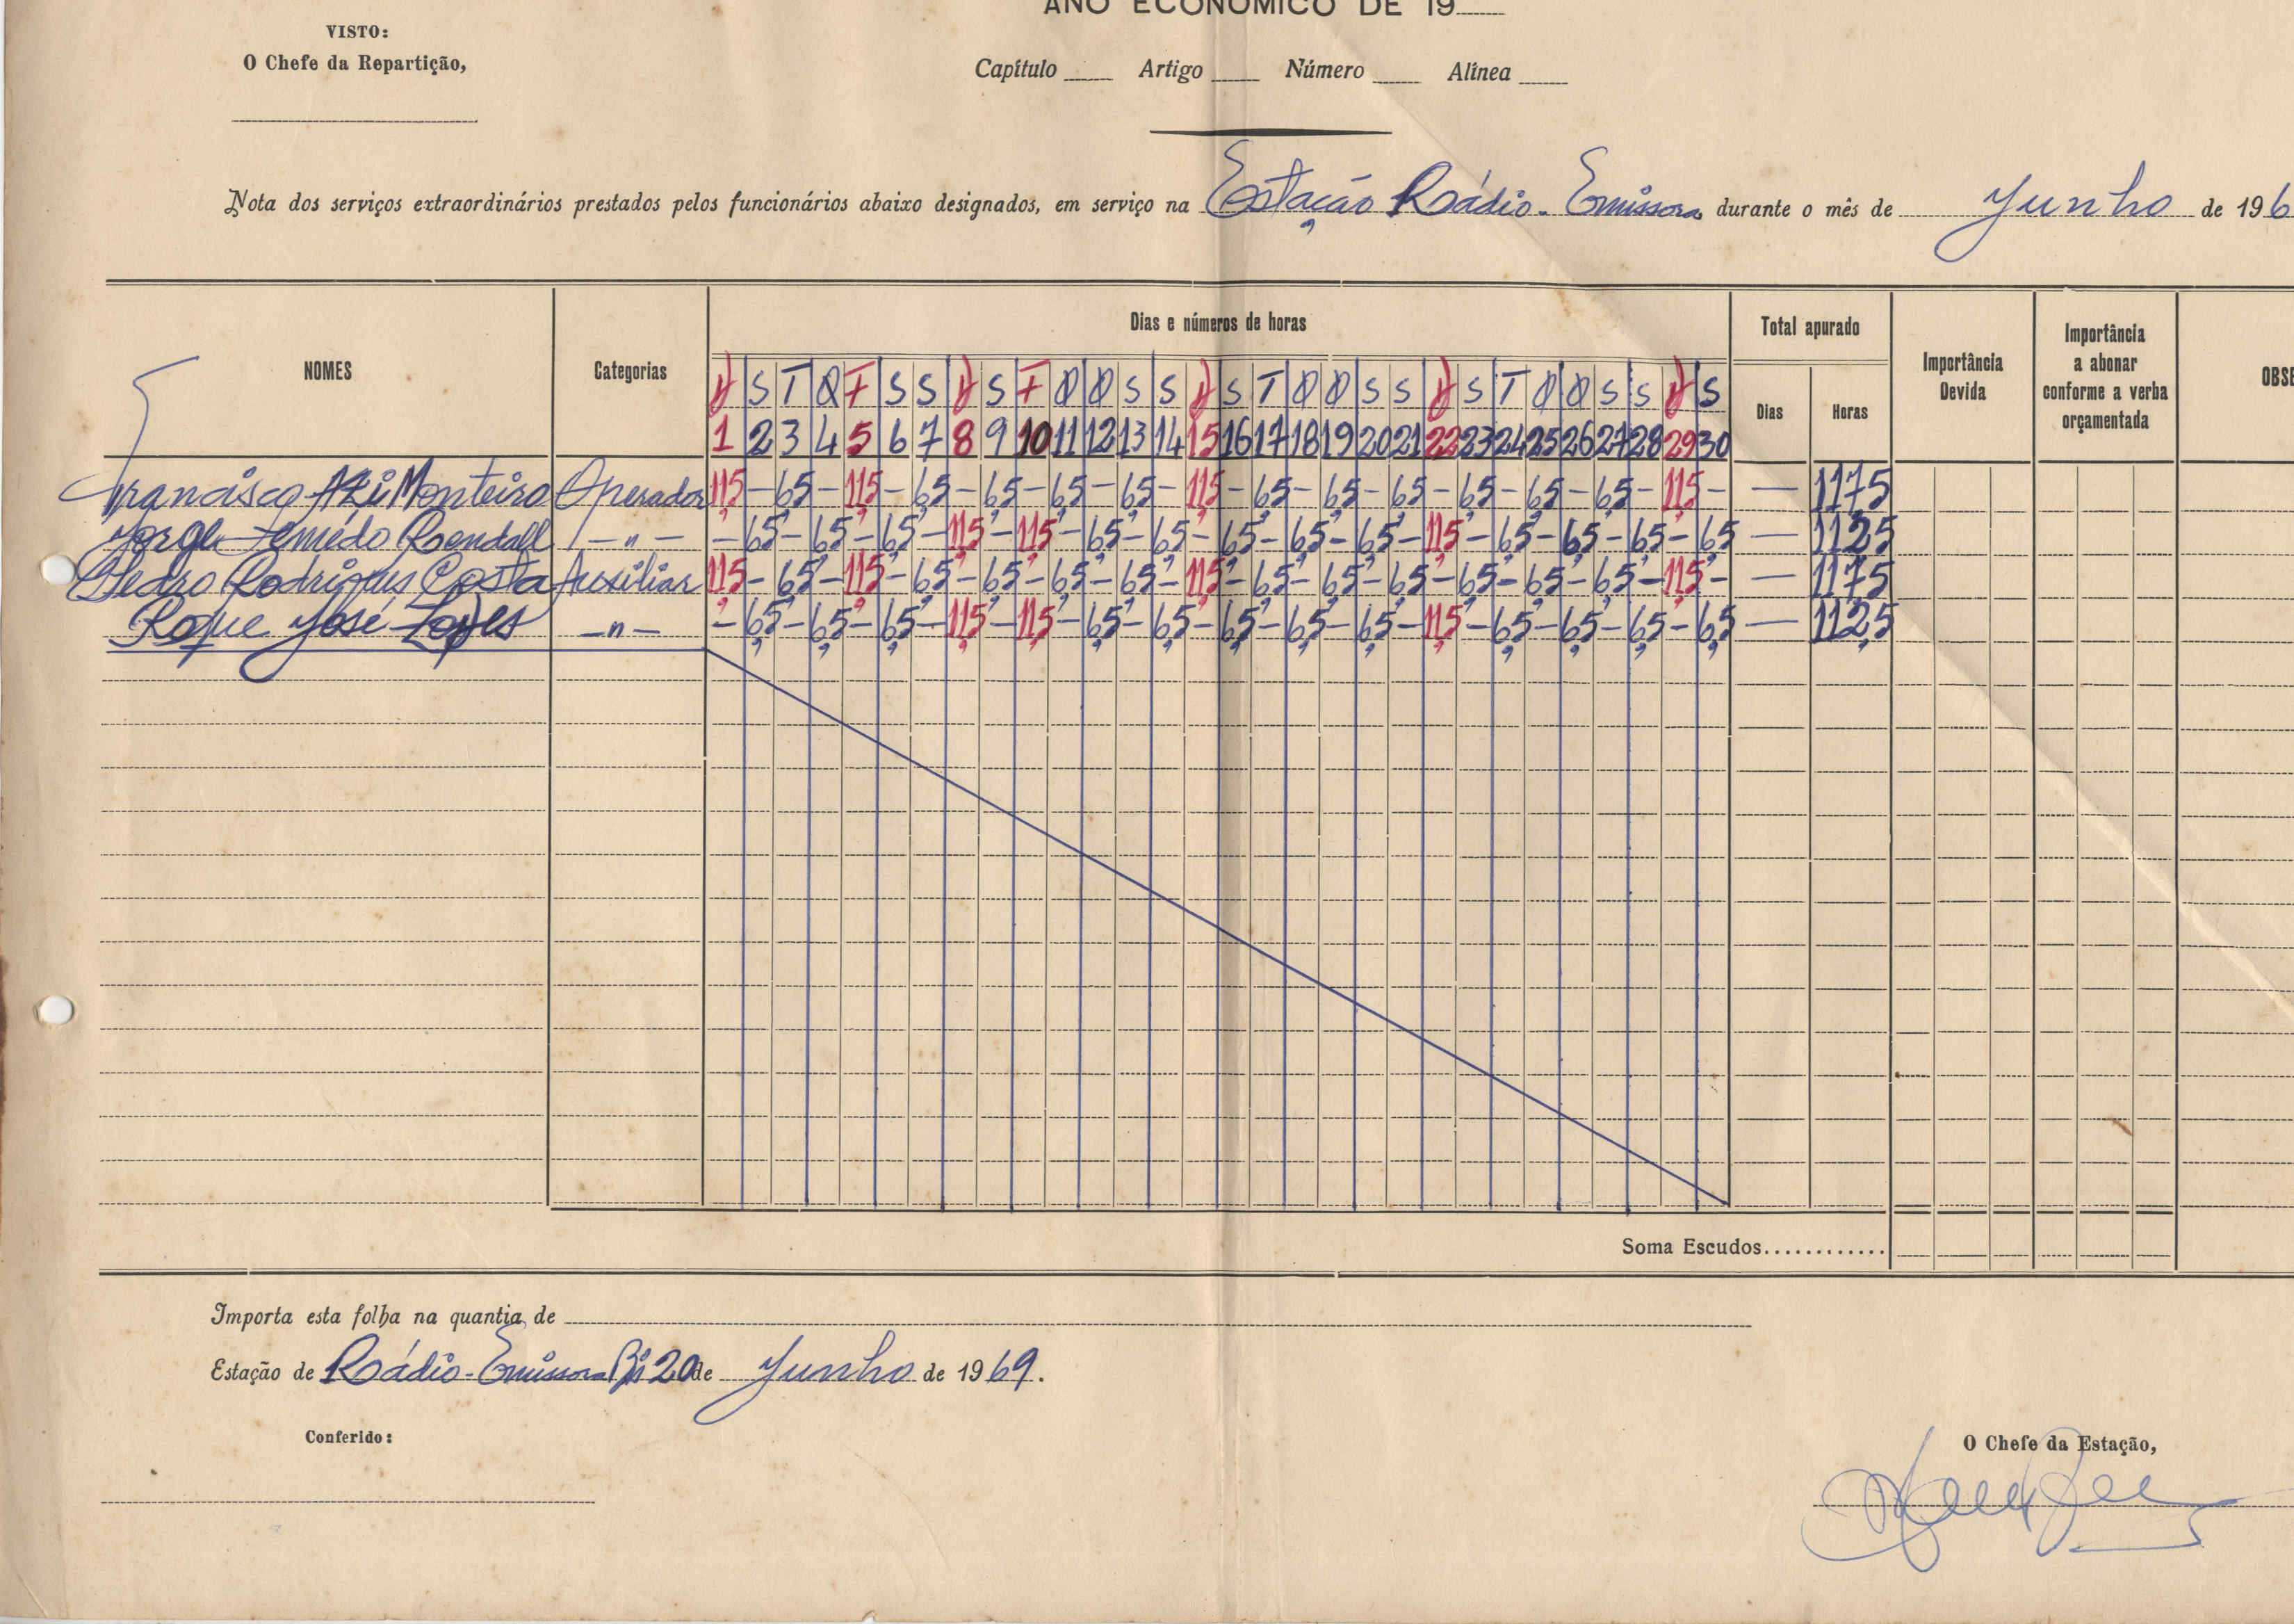 ANO ECONÓMICO DE 19
VISTO:
O Chefe da Repartição,
Capítulo Artigo Número Alínea
Nota dos serviços extraordinários prestados pelos funcionários abaixo designados, em serviço na Estação Rádio-Emissora durante o mês de Junho de 196
NOMES Categorias Dias e números de horas Total apurado Importância Devida Importância a abonar conforme a verba orçamentada OBSE
Dias Horas
D S T Q F S S D S F Q Q S S D S T Q Q S S D S T Q Q S S D S
1 2 3 4 5 6 7 8 9 10 11 12 13 14 15 16 17 18 19 20 21 22 23 24 25 26 27 28 29 30
Francisco Monteiro Operador 11,5 - 6,5 - 11,5 - 6,5 - 6,5 - 6,5 - 6,5 - 11,5 - 6,5 - 6,5 - 6,5 - 6,5 - 6,5 - 6,5 - 11,5 - — 117,5
Jorge Semedo Rendall -"- - 6,5 - 6,5 - 6,5 - 11,5 - 11,5 - 6,5 - 6,5 - 6,5 - 6,5 - 6,5 - 11,5 - 6,5 - 6,5 - 6,5 - 6,5 — 112,5
Pedro Rodrigues Costa Auxiliar 11,5 - 6,5 - 11,5 - 6,5 - 6,5 - 6,5 - 6,5 - 11,5 - 6,5 - 6,5 - 6,5 - 6,5 - 6,5 - 6,5 - 11,5 - — 117,5
Roque José Lopes -"- - 6,5 - 6,5 - 6,5 - 11,5 - 11,5 - 6,5 - 6,5 - 6,5 - 6,5 - 6,5 - 11,5 - 6,5 - 6,5 - 6,5 - 6,5 — 112,5
Soma Escudos............
Importa esta folha na quantia de
Estação de Rádio-Emissora 20 de Junho de 1969.
Conferido:
O Chefe da Estação,